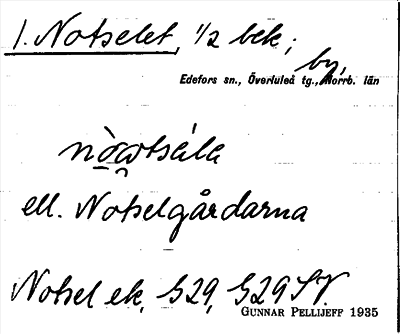 1. Notselet, 1/2 bek; by,
Edefors sn., Överluleå tg., Norrb. län
ell. Notselgårdarna
Notsel ek. S29, S29 SV.
GUNNAR PELLIJEFF 1935